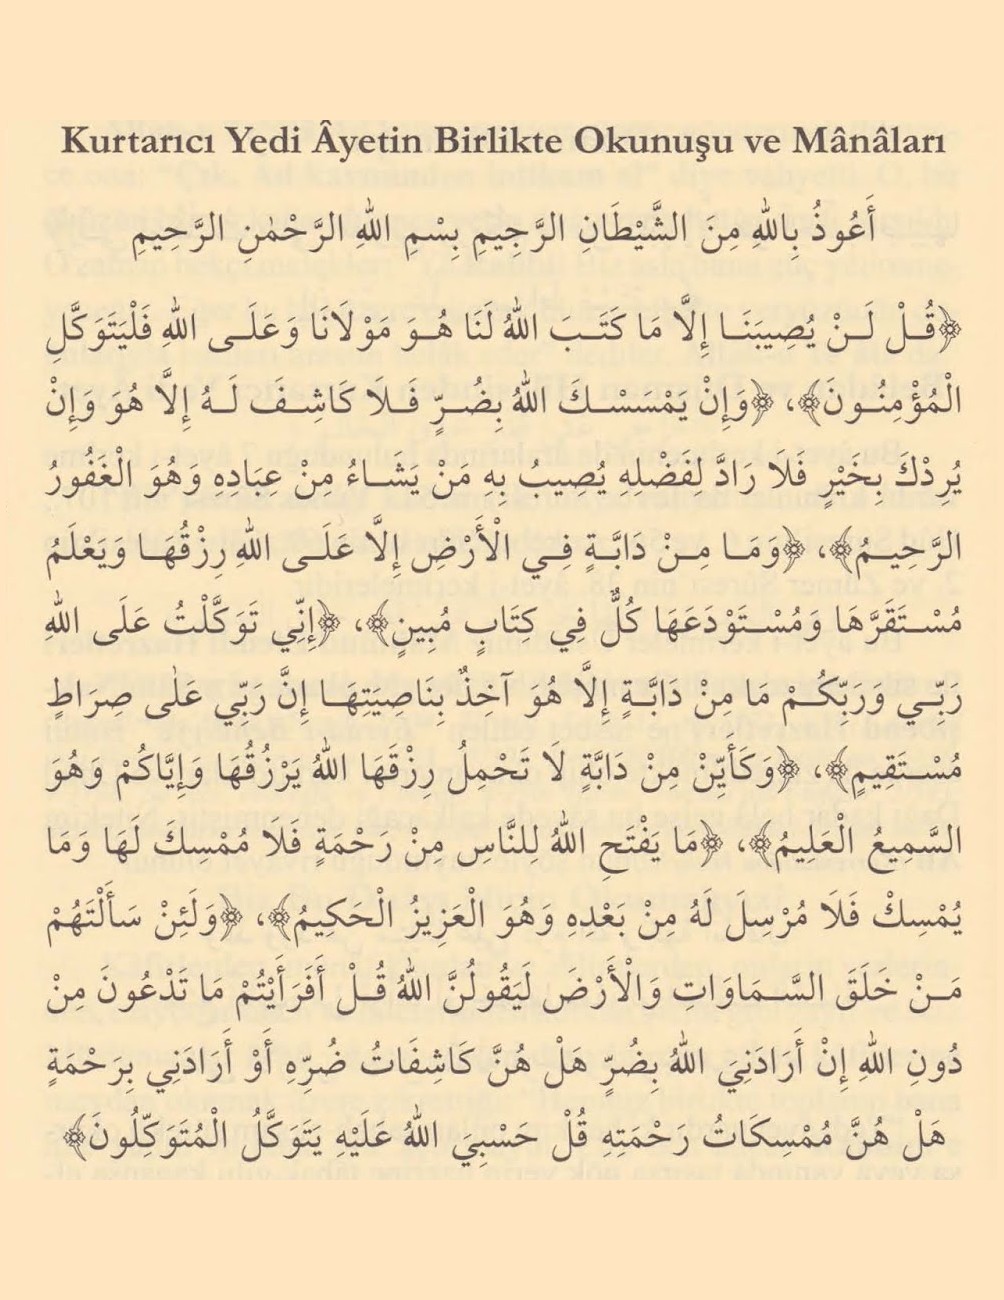 Kurtarıcı Yedi Âyetin Birlikte Okunuşu ve Mânâları
أَعُوذُ بِاللهِ مِنَ الشَّيْطَانِ الرَّجِيمِ بِسْمِ اللهِ الرَّحْمٰنِ الرَّحِيمِ
﴿قُلْ لَنْ يُصِيبَنَا إِلَّا مَا كَتَبَ اللهُ لَنَا هُوَ مَوْلَانَا وَعَلَى اللهِ فَلْيَتَوَكَّلِ
الْمُؤْمِنُونَ﴾، ﴿وَإِنْ يَمْسَسْكَ اللهُ بِضُرٍّ فَلَا كَاشِفَ لَهُ إِلَّا هُوَ وَإِنْ
يُرِدْكَ بِخَيْرٍ فَلَا رَادَّ لِفَضْلِهِ يُصِيبُ بِهِ مَنْ يَشَاءُ مِنْ عِبَادِهِ وَهُوَ الْغَفُورُ
الرَّحِيمُ﴾، ﴿وَمَا مِنْ دَابَّةٍ فِي الْأَرْضِ إِلَّا عَلَى اللهِ رِزْقُهَا وَيَعْلَمُ
مُسْتَقَرَّهَا وَمُسْتَوْدَعَهَا كُلٌّ فِي كِتَابٍ مُبِينٍ﴾، ﴿إِنِّي تَوَكَّلْتُ عَلَى اللهِ
رَبِّي وَرَبِّكُمْ مَا مِنْ دَابَّةٍ إِلَّا هُوَ آخِذٌ بِنَاصِيَتِهَا إِنَّ رَبِّي عَلَى صِرَاطٍ
مُسْتَقِيمٍ﴾، ﴿وَكَأَيِّنْ مِنْ دَابَّةٍ لَا تَحْمِلُ رِزْقَهَا اللهُ يَرْزُقُهَا وَإِيَّاكُمْ وَهُوَ
السَّمِيعُ الْعَلِيمُ﴾، ﴿مَا يَفْتَحِ اللهُ لِلنَّاسِ مِنْ رَحْمَةٍ فَلَا مُمْسِكَ لَهَا وَمَا
يُمْسِكْ فَلَا مُرْسِلَ لَهُ مِنْ بَعْدِهِ وَهُوَ الْعَزِيزُ الْحَكِيمُ﴾، ﴿وَلَئِنْ سَأَلْتَهُمْ
مَنْ خَلَقَ السَّمَاوَاتِ وَالْأَرْضَ لَيَقُولُنَّ اللهُ قُلْ أَفَرَأَيْتُمْ مَا تَدْعُونَ مِنْ
دُونِ اللهِ إِنْ أَرَادَنِيَ اللهُ بِضُرٍّ هَلْ هُنَّ كَاشِفَاتُ ضُرِّهِ أَوْ أَرَادَنِي بِرَحْمَةٍ
هَلْ هُنَّ مُمْسِكَاتُ رَحْمَتِهِ قُلْ حَسْبِيَ اللهُ عَلَيْهِ يَتَوَكَّلُ الْمُتَوَكِّلُونَ﴾